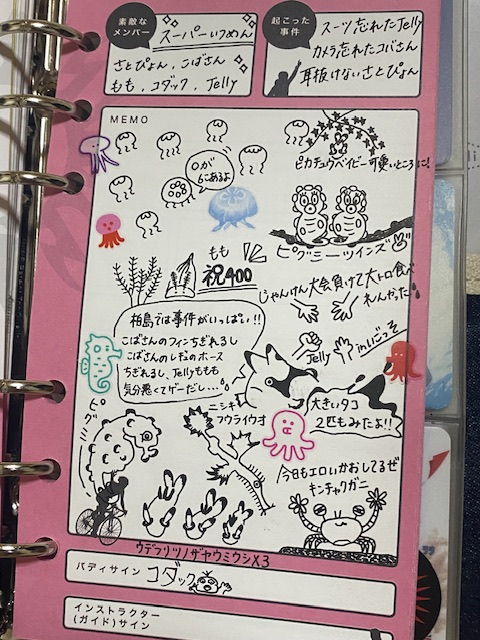 素敵な
メンバー
スーパーいつめん
さとぴょん、こばさん
もも、コダック、Jelly
起こった
事件
スーツ忘れたJelly
カメラ忘れたコバさん
耳抜けないさとぴょん
MEMO
○が
6こあるよ
ピカチュウベイビー可愛いところに!
ピグミーツインズ
もも
祝400
じゃんけん大会負けて大トロ食べ
れんやった
柏島では事件がいっぱい!!
こばさんのフィンちぎれるし
こばさんのレギュのホース
ちぎれるし、Jellyももも
気分悪くてゲーだし…
Jelly
inいごっそ
大きいタコ
2匹もみたよ!!
ニシキ
フウライウオ
ピグミー
今日もエロいかおしてるぜ
キンチャクガニ
ウデフリツノザヤウミウシX3
バディサイン
コダック
インストラクター
(ガイド)サイン